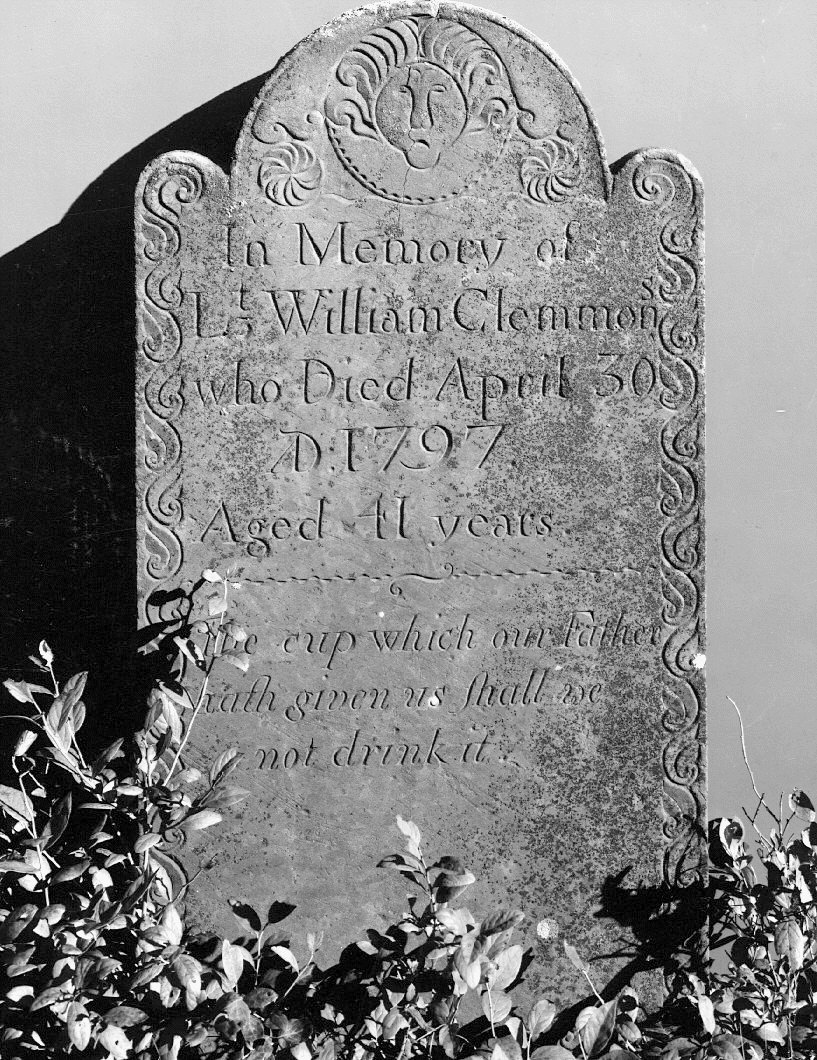 In Memory of
Lt. William Clemmons
who Died April 30
AD. 1797.
Aged 41 years
The cup which our Father
hath given us ſhall we
not drink it.